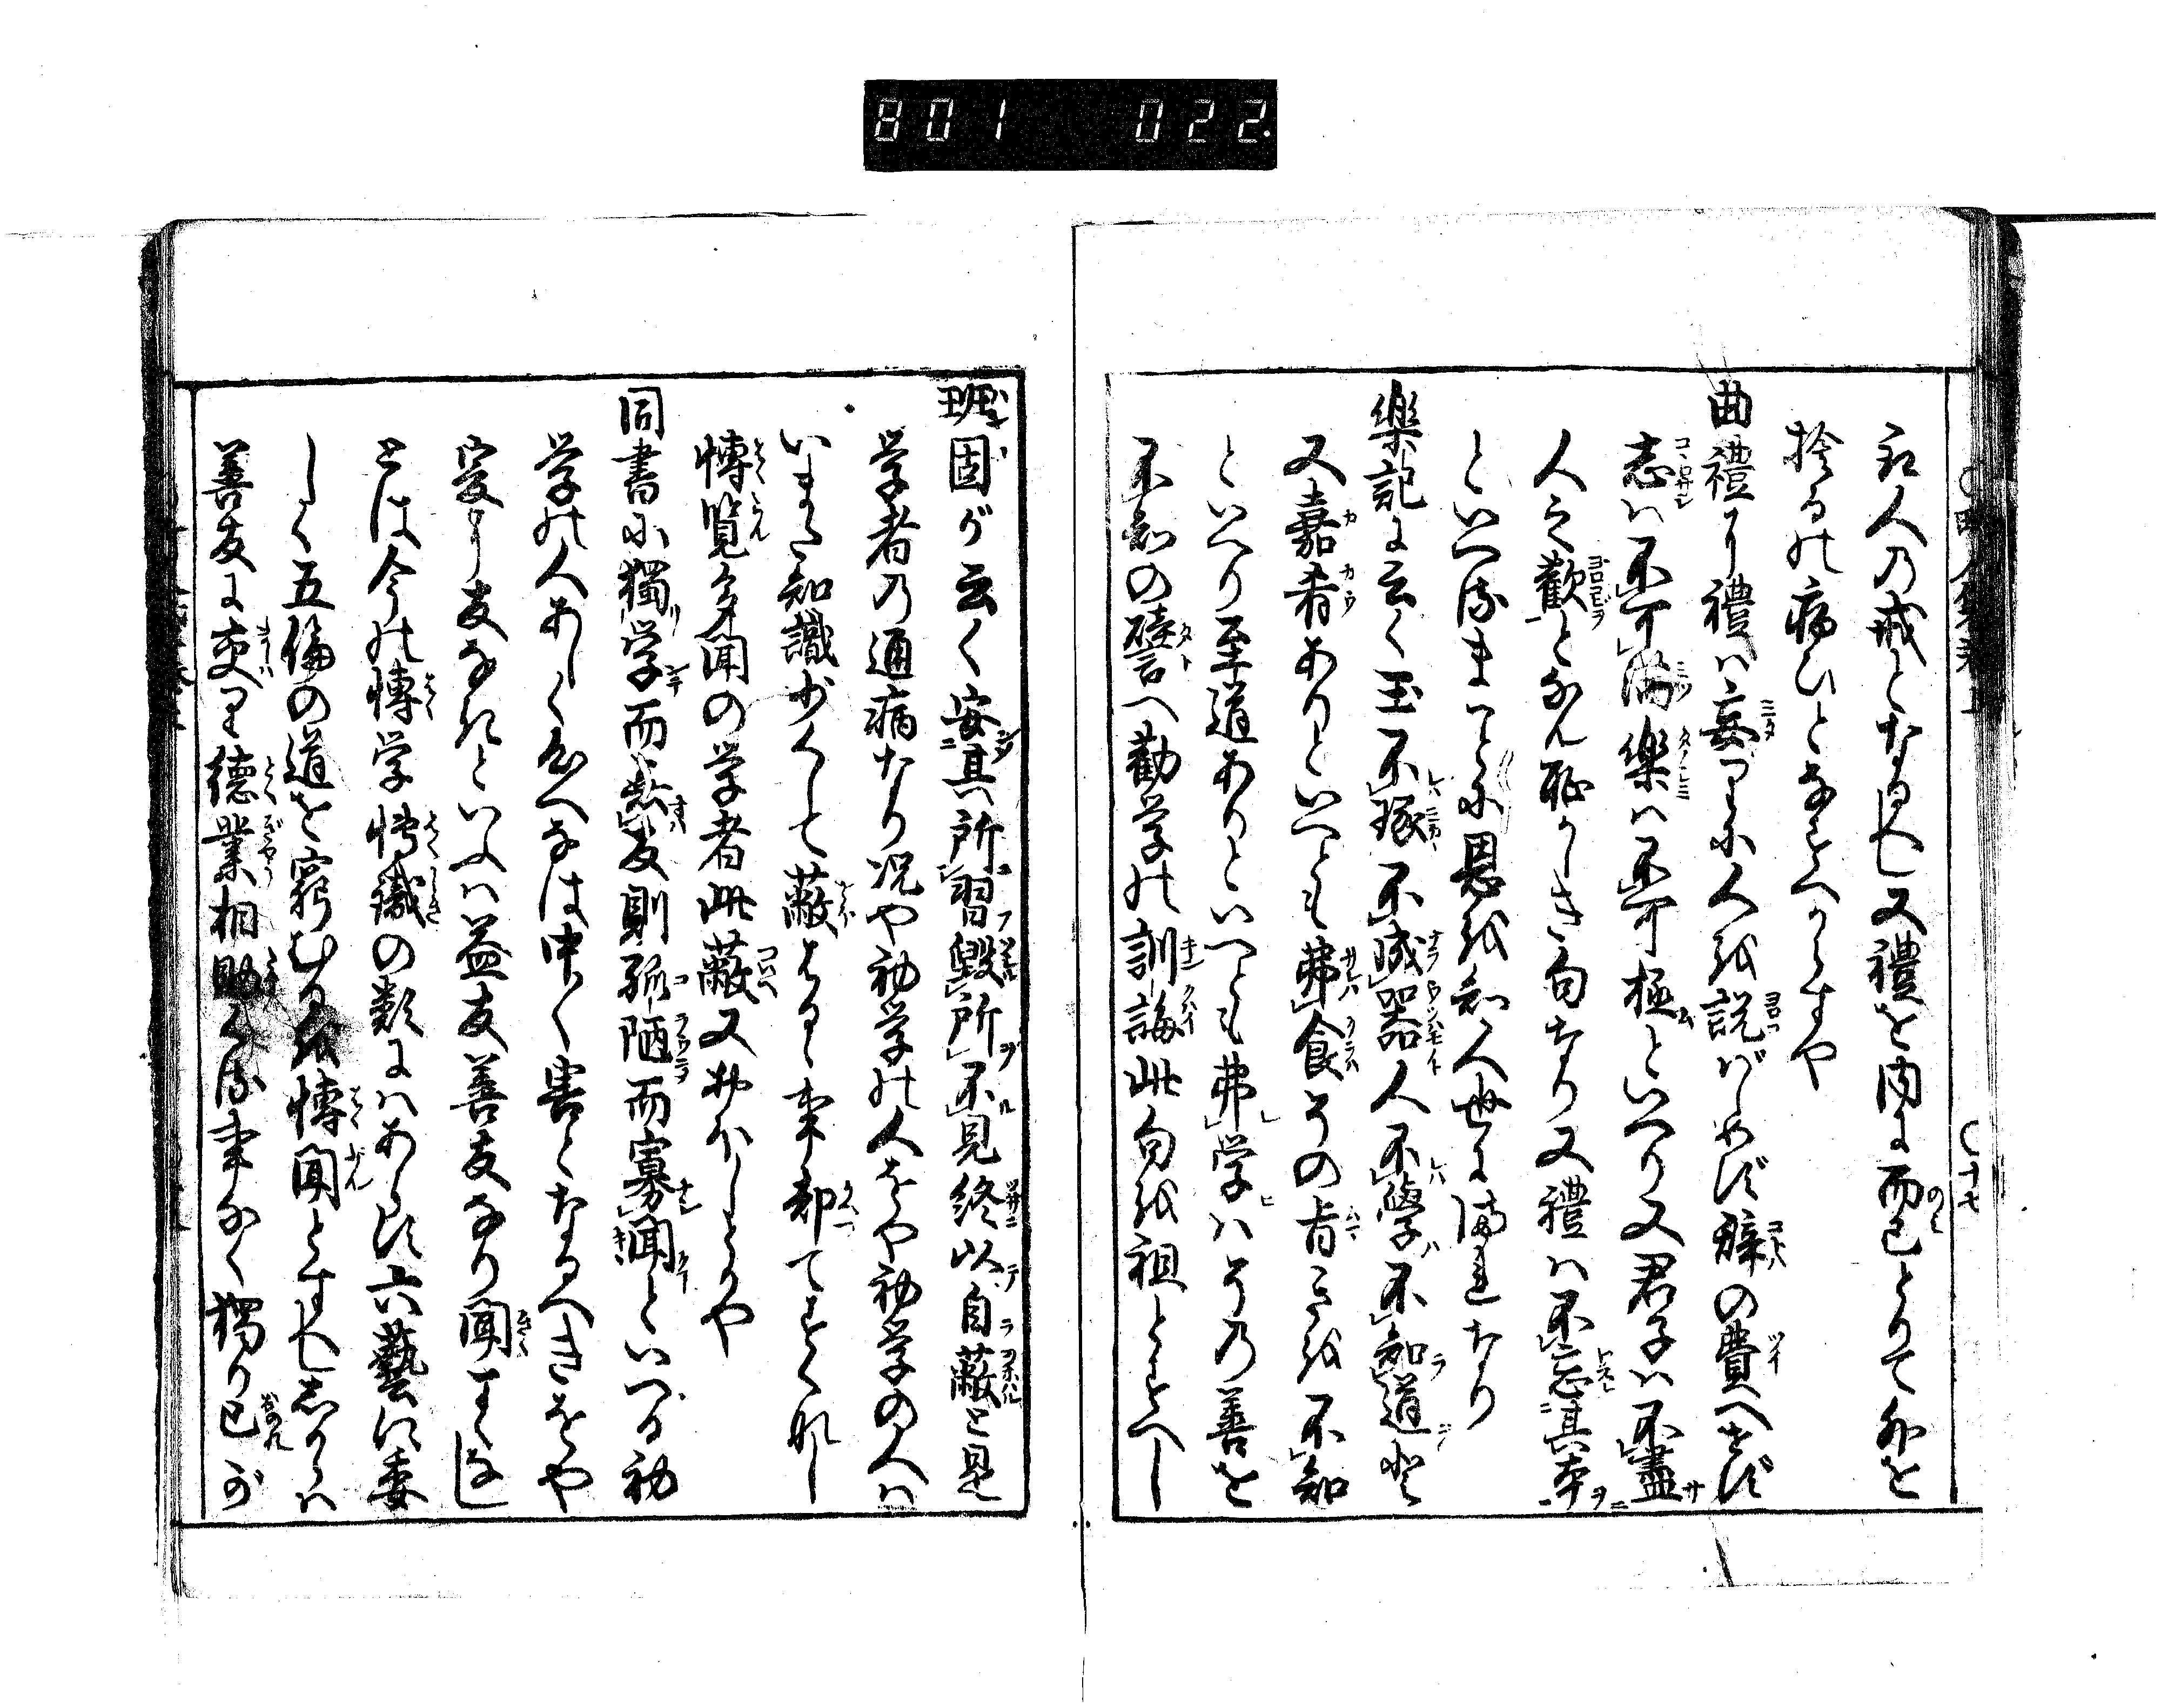 801 022
和人乃戒となるへし又禮を内に而已とりて外を
捨るの病ひとなすへからすや
曲禮に禮ハ妄りに人を説ばしめず辞の費へせず
志ハ不可満樂ハ不可極といへり又君子ハ不盡
人之歡となん恥かしき句なり又禮ハ不忘其本
といへるまことに恩を知人世に満まれなり
樂記に云く玉不琢不成器人不學不知道と
又嘉肴ありといへとも弗食その旨きを不知
といへり至道ありといへとも弗学ハその善を
不知の譬へ勸学の訓誨此句を祖とすへし
班固が云く安其所習毀所不見終以自蔽と是
学者乃通病なり况や初学の人をや初学の人ハ
いまた知識少くして蔽はるゝ事却てすくなし
博覧多聞の学者此蔽又おほしとかや
同書に獨学而無友則孤陋而寡聞といへる初
学の人あしく心へなは中〱害となるへきをや
爰に友なきといへハ益友善友なり聞すへし
とは今の博学博識の類にハあらす六藝に委
しく五倫の道を窮むるを博聞とすへししからハ
善友に交り徳業相助くる事なく獨り己が